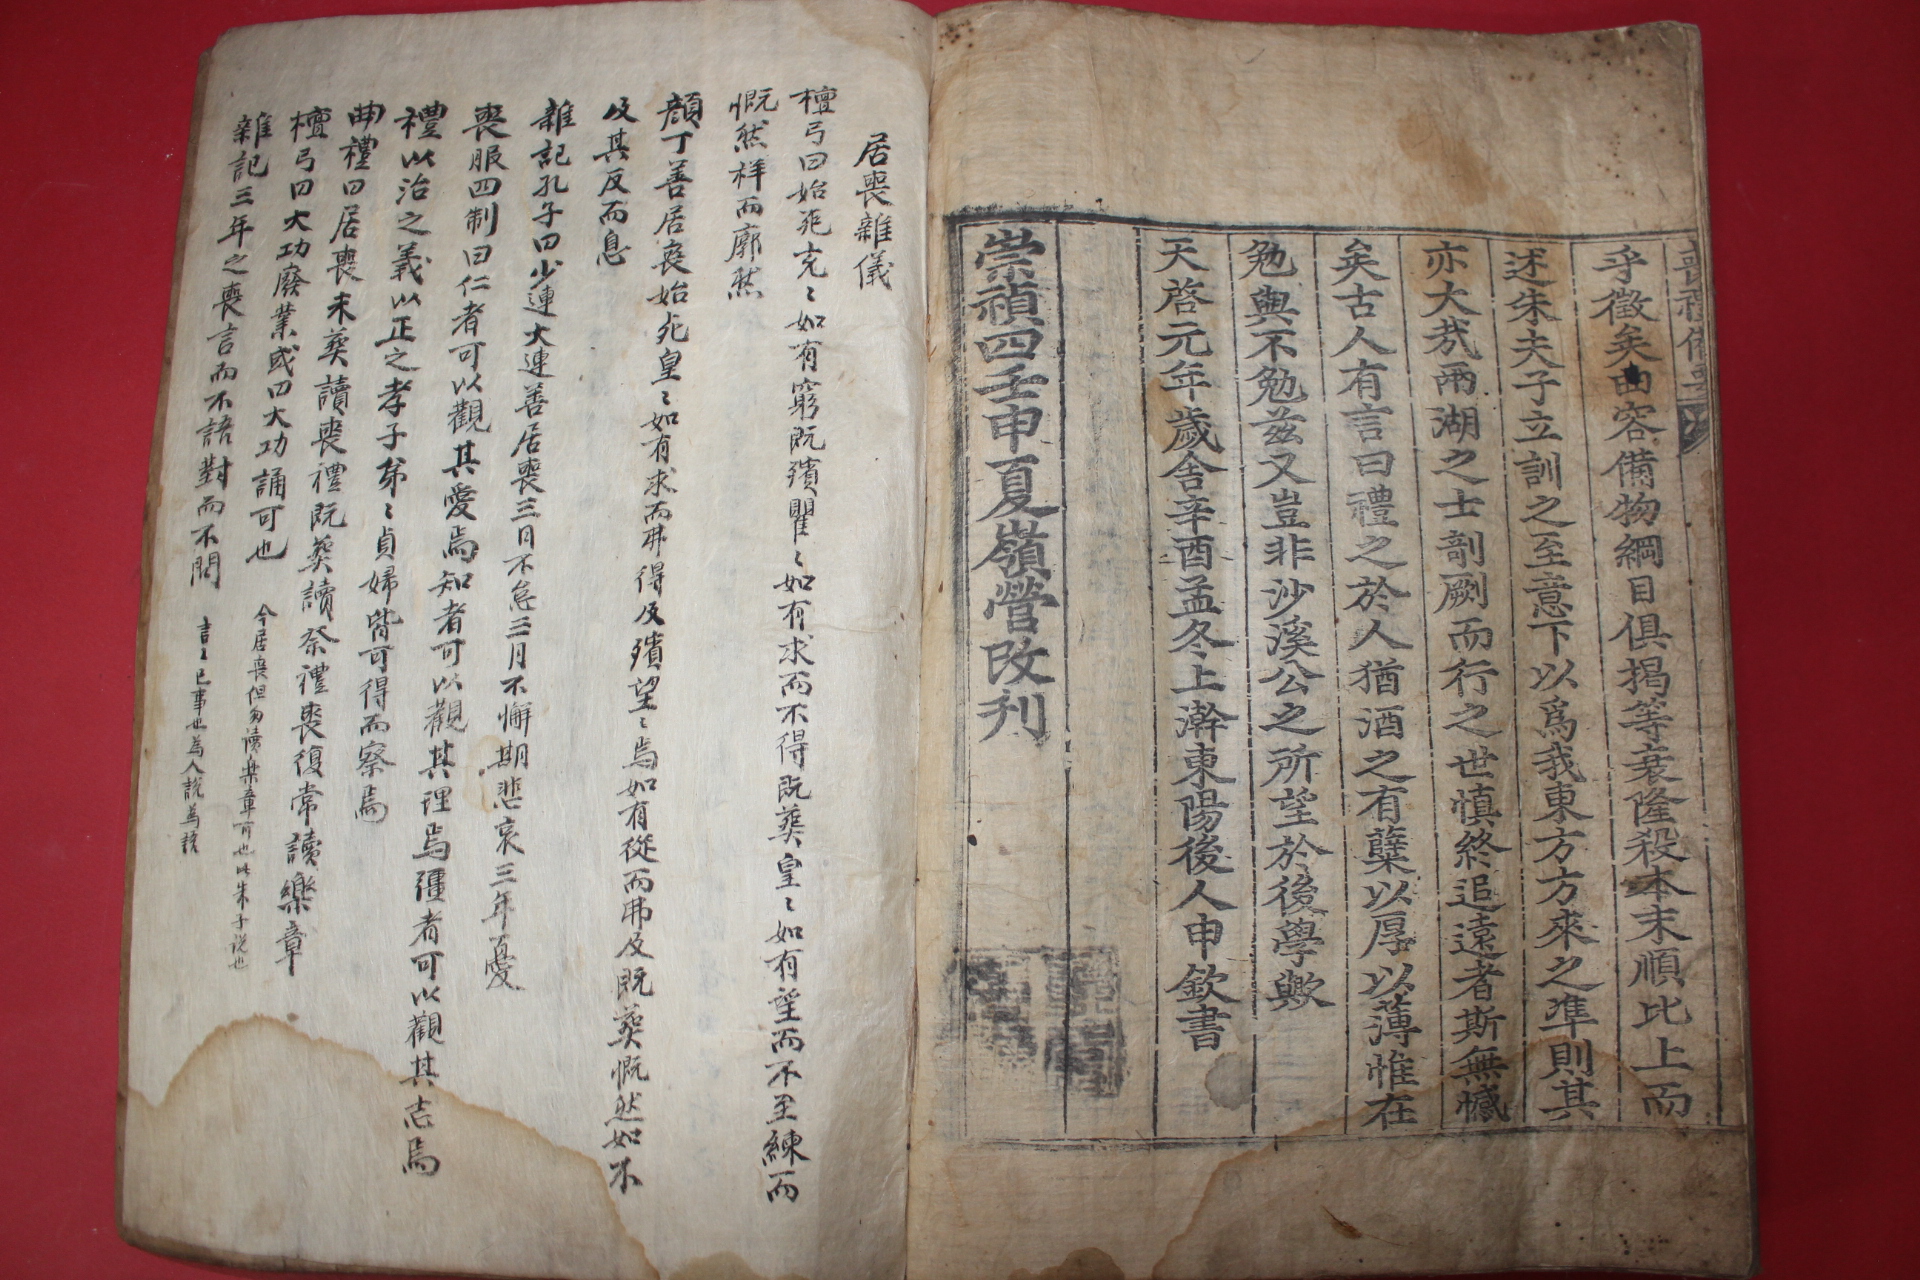 喪禮備要
乎徵矣曲容備物綱目俱揭等衰隆殺本末順比上而
述朱夫子立訓之至意下以爲我東方方來之準則其
亦大哉兩湖之士剞劂而行之世慎終追遠者斯無憾
矣古人有言曰禮之於人猶酒之有蘖以厚以薄惟在
勉與不勉茲又豈非沙溪公之所望於後學歟
天啓元年歲舍辛酉孟冬上澣東陽後人申欽書
崇禎四壬申夏嶺營改刊
居喪雜儀
檀弓曰始死充〻如有窮既殯瞿〻如有求而不得既葬皇〻如有望而不至練而
慨然祥而廓然
顔丁善居喪始死皇〻如有求而弗得及殯望〻焉如有從而弗及既葬慨然如不
及其反而息
雜記孔子曰少連大連善居喪三日不怠三月不懈期悲哀三年憂
喪服四制曰仁者可以觀其愛焉知者可以觀其理焉彊者可以觀其志焉
禮以治之義以正之孝子弟〻貞婦皆可得而察焉
曲禮曰居喪未葬讀喪禮既葬讀祭禮喪復常讀樂章
檀弓曰大功廢業或曰大功誦可也 今居喪但勿讀樂章可也此朱子說也
雜記三年之喪言而不語對而不問 言〻已事也爲人說爲語